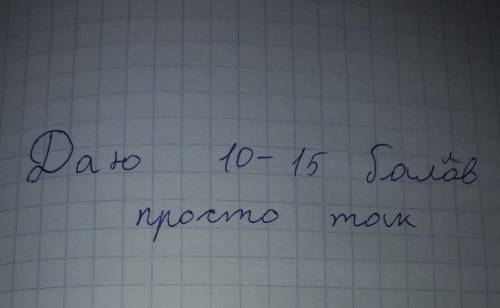 Даю 10-15 балов
просто так